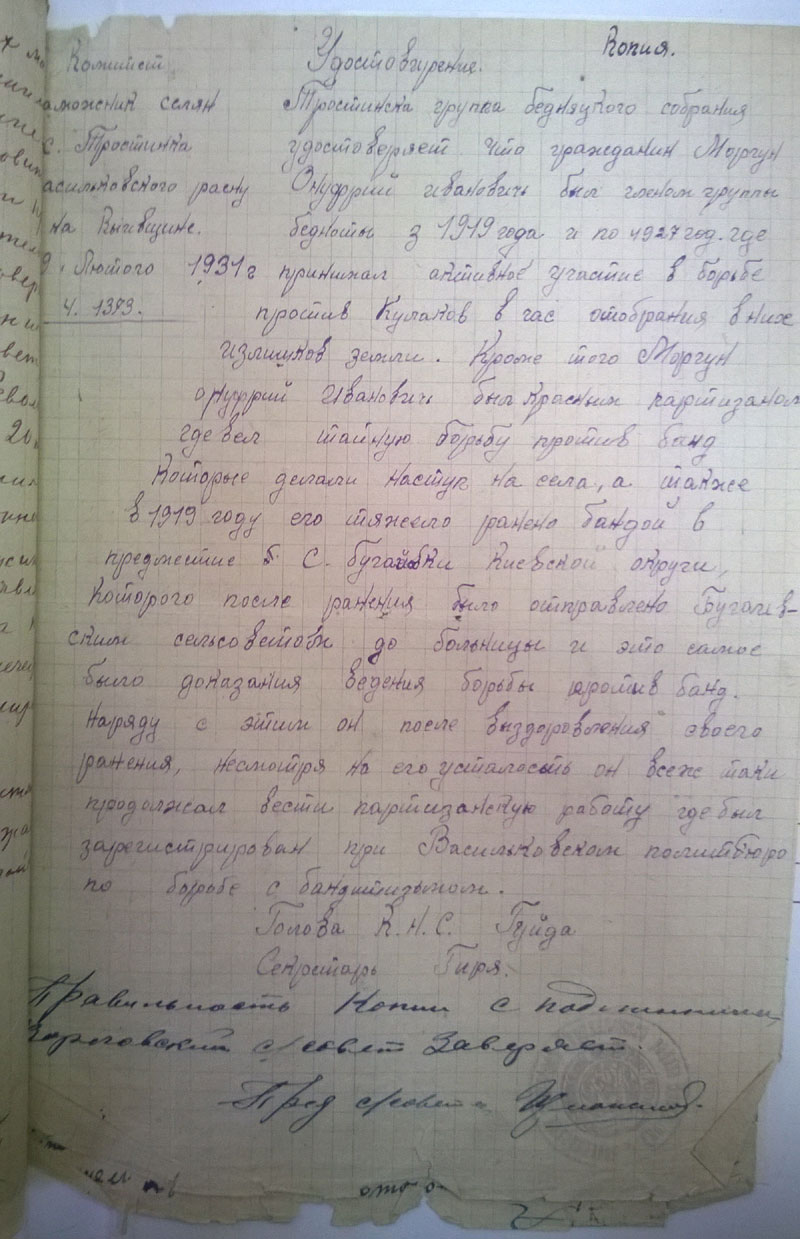 Копия.
Комитет
Удостовгурение.
аможник селян
Тростинска група бедняцкого собрания
с. Тростинка
удостоверяет что гражданин Моргун
асильковского разну
Онуфрий Иванович был членом группы
на Кыивщине.
бедноты з 1919 года и по 1927 год. где
9. Лютого 1931 г
принимал активное участие в борьбе
Ч. 1373.
против Кулаков в час отобрания в них
излишков земли. Кроме того Моргун
Онуфрий Иванович был Красным партизаном
где вел тайную борьбу против банд
Которые делали наступ на села, а также
в 1919 году его тяжело ранено бандой в
предместие с. Бугаёвки Киевской округи,
Которого после ранения было отправлено Бугаев-
ским сельсоветом до больницы и это самое
было доказания ведения борьбы против банд.
Наряду с этим он после выздоровления своего
ранения, несмотря на его усталость он всеж таки
продолжал вести партизанскую работу где был
зарегистрирован при Васильковском политбюро
по боробе с бандитизьмом.
Голова К.Н.С. Гуйда
Секритарь Гиря.
Правильность Копии с подлинником
с/совет Заверяет.
Пред с/совета